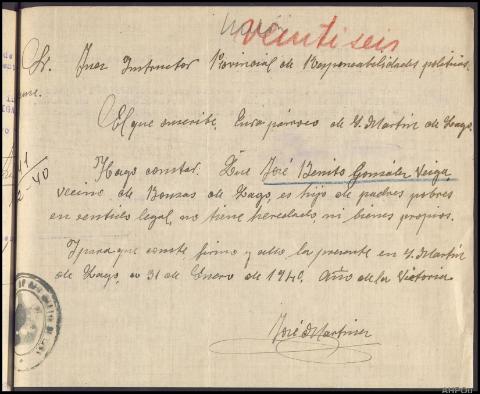 veintiseis
Sr. Juez Instructor Provincial de Responsabilidades politicas.
El que suscribe, Cura párroco de S. Martin de Lago.
11
2-40
Hago constar: Que José Benito González Veiga
vecino de Bouzas de Lago, es hijo de padres pobres
en sentido legal, no tiene heredado, ni bienes propios.
Y para que conste firmo y sello la presente en S. Martin
de Lago, a 31 de Enero de 1940. Año de la Victoria
José Martinez
AHPOU